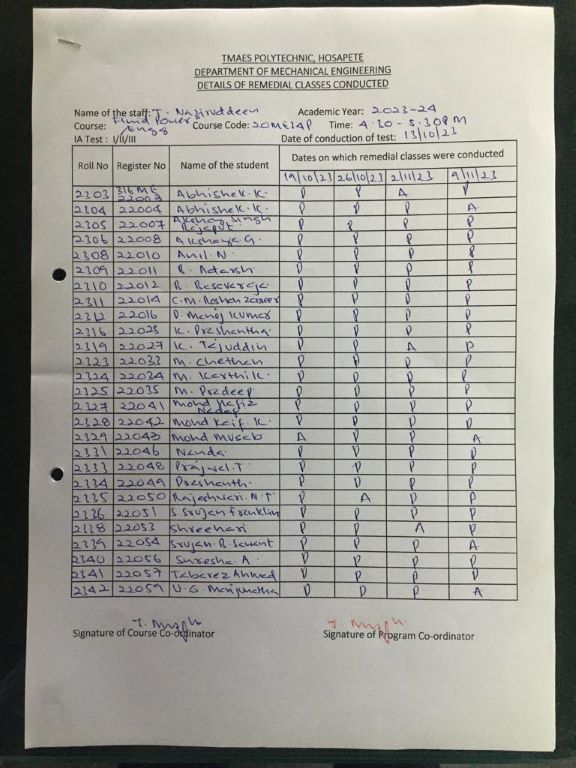 TMAES POLYTECHNIC, HOSAPETE
DEPARTMENT OF MECHANICAL ENGINEERING
DETAILS OF REMEDIAL CLASSES CONDUCTED
Name of the staff: T. Naziruddeen Academic Year: 2023-24
Course: Fluid Power Engg Course Code: 20ME34P Time: 4:30 - 5:30PM
IA Test : I/II/III Date of conduction of test: 13/10/23
Roll No Register No Name of the student Dates on which remedial classes were conducted
19/10/23 26/10/23 2/11/23 9/11/23
2303 316ME 22002 Abhishek. K. P P A P
2304 22004 Abhishek. K. P P P A
2305 22007 Akshay Singh Rajaput P P P P
2306 22008 Akshaya G. P P P P
2308 22010 Anil. N P P P P
2309 22011 B. Adarsh P P P P
2310 22012 B. Basavaraja P P P P
2311 22014 C.M. Roshan Zameer P P P P
2312 22016 D. Manoj Kumar P P P P
2316 22025 K. Prashantha P P P P
2319 22027 K. Tajuddin P P A P
2323 22033 M. Chethan P P P P
2324 22034 M. Karthik. P P P P
2325 22035 M. Pradeep P P P P
2327 22041 Mohd Hafiz Nadaf P P P P
2328 22042 Mohd Kaif. K. P P P P
2329 22043 Mohd Musab A P P A
2331 22046 Nanda P P P P
2333 22048 Prajwal. T P P P P
2334 22049 Prashanth. P P P P
2335 22050 Rajeshwari. N.T P A P P
2336 22051 S. Srujan Franklin P P P P
2338 22053 Shreehari P P A P
2339 22054 Srujan. R. Sawant P P P A
2340 22056 Suresha. A. P P P P
2341 22057 Tabarez Ahmed P P P P
2342 22059 U.G. Manjunatha P P P A
Signature of Course Co-ordinator Signature of Program Co-ordinator